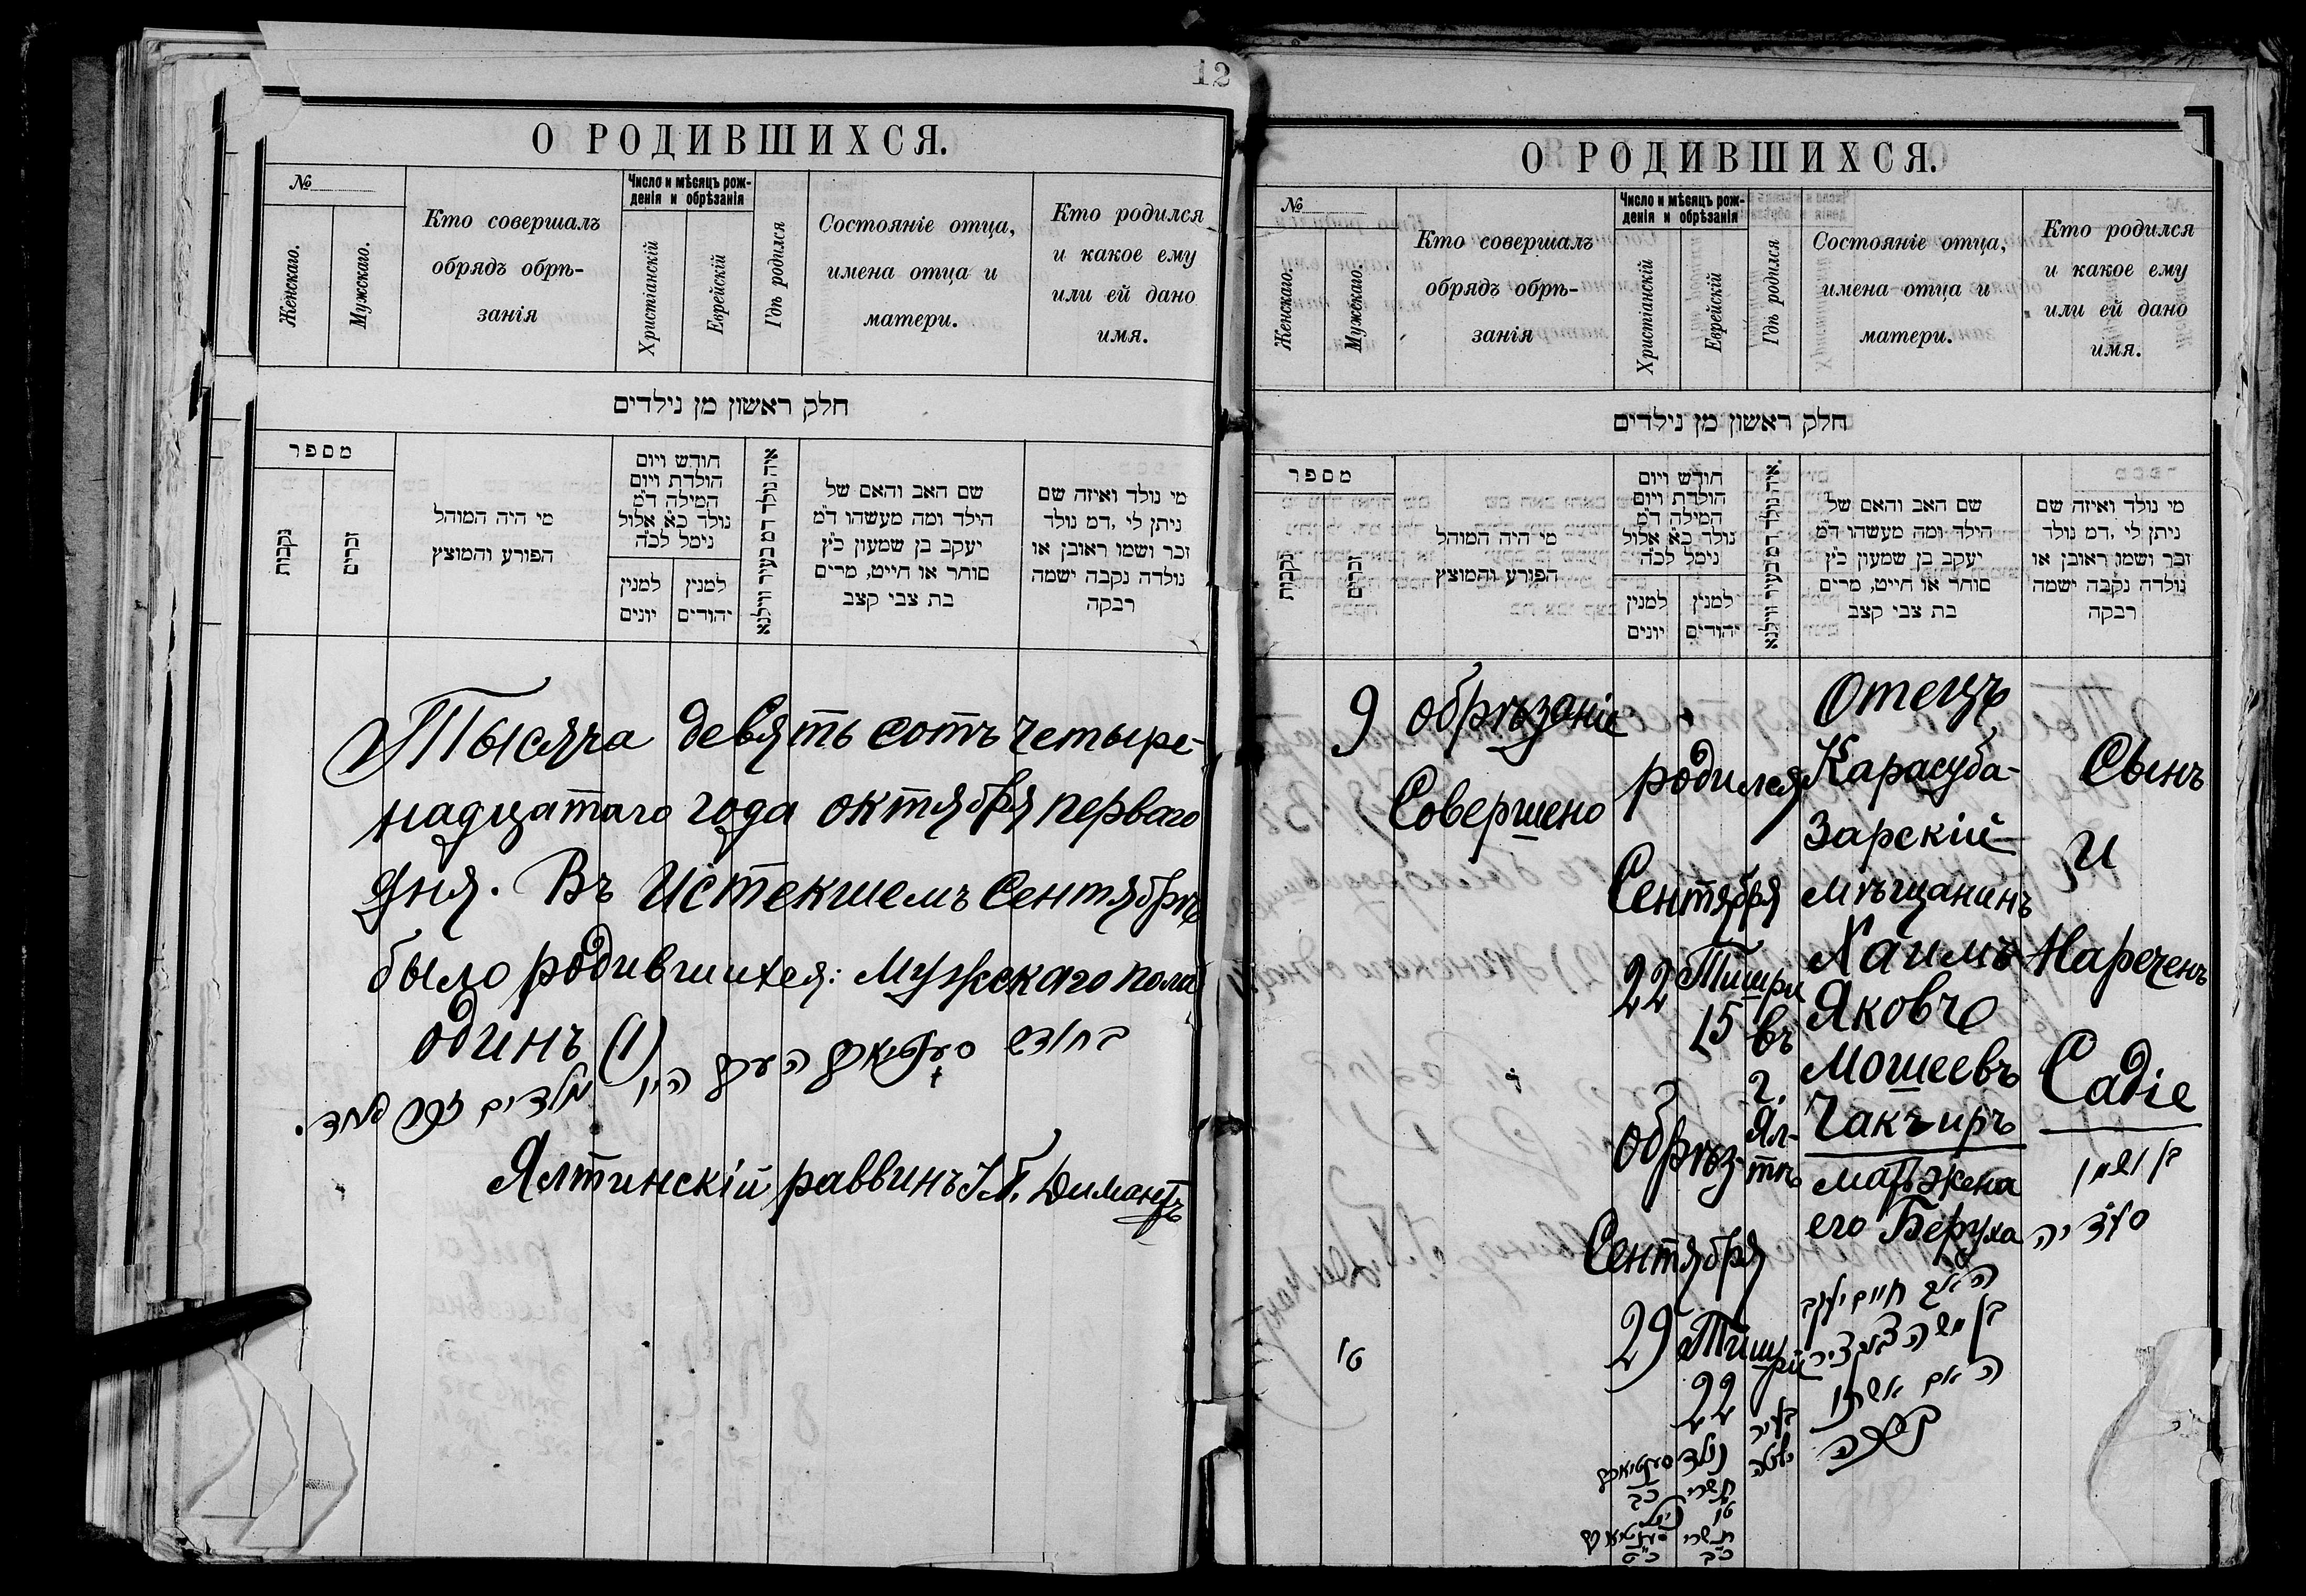 12
О РОДИВШИХСЯ.
№
Женскаго.
Мужскаго.
Кто совершалъ
обрядъ обрѣ-
занія
Число и мѣсяцъ рож-
денія и обрѣзанія
Христіанскій
Еврейскій
Гдѣ родился
Состояніе отца,
имена отца и
матери.
Кто родился
и какое ему
или ей дано
имя.
חלק ראשון מן נילדים
מספר
נקבות
זכרים
מי היה המוהל
הפורע והמוצץ
חודש ויום
הולדת ויום
המילה ד"מ
נולד כא אלול
נימל לכ"ה
למנין
יונים
למנין
יהודים
איה נולד דמ בעיר ווילנא
שם האב והאם של
הילד ומה מעשהו ד"מ
יעקב בן שמעון כ"ץ
סוחר או חייט, מרים
בת צבי קצב
מי נולד ואיזה שם
ניתן לי, דמ נולד
זכר ושמו ראובן או
נולדה נקבה ישמה
רבקה
Тысяча девять сотъ четыре-
надцатаго года октября перваго
дня. Въ истекшемъ Сентябрѣ
было родившихся: мужскаго пола
одинъ (1)
בחודש
היו
זכר
Ялтинскій раввинъ Димантъ
О РОДИВШИХСЯ.
№
Женскаго.
Мужскаго.
Кто совершалъ
обрядъ обрѣ-
занія
Число и мѣсяцъ рож-
денія и обрѣзанія
Христіанскій
Еврейскій
Гдѣ родился
Состояніе отца,
имена отца и
матери.
Кто родился
и какое ему
или ей дано
имя.
חלק ראשון מן נילדים
מספר
נקבות
זכרים
מי היה המוהל
הפורע והמוצץ
חודש ויום
הולדת ויום
המילה ד"מ
נולד כא אלול
נימל לכ"ה
למנין
יונים
למנין
יהודים
איה נולד דמ בעיר ווילנא
שם האב והאם של
הילד ומה מעשהו ד"מ
יעקב בן שמעון כ"ץ
סוחר או חייט, מרים
בת צבי קצב
מי נולד ואיזה שם
ניתן לי, דמ נולד
זכר ושמו ראובן או
נולדה נקבה ישמה
רבקה
9
обрѣзаніе
Совершено
родился
Сентября
22
Тишри
15
обрѣз-
Сентября
29
Тишрій
22
נולד
תשרי
כב
טו
תשרי
כב
כ"ט
въ
г.
Ял-
тѣ
בעיר
יאלטה
Отецъ
Карасуба-
зарскій
мѣщанинъ
Хаимъ
Яковъ
Мошеевъ
Чакъиръ
мать жена
его Беруха
האב חיים יעקב
בן משה
האם אשתו
ברוכה
Сынъ
и
Нареченъ
Садіе
בן ושמו
סעדיה
ט